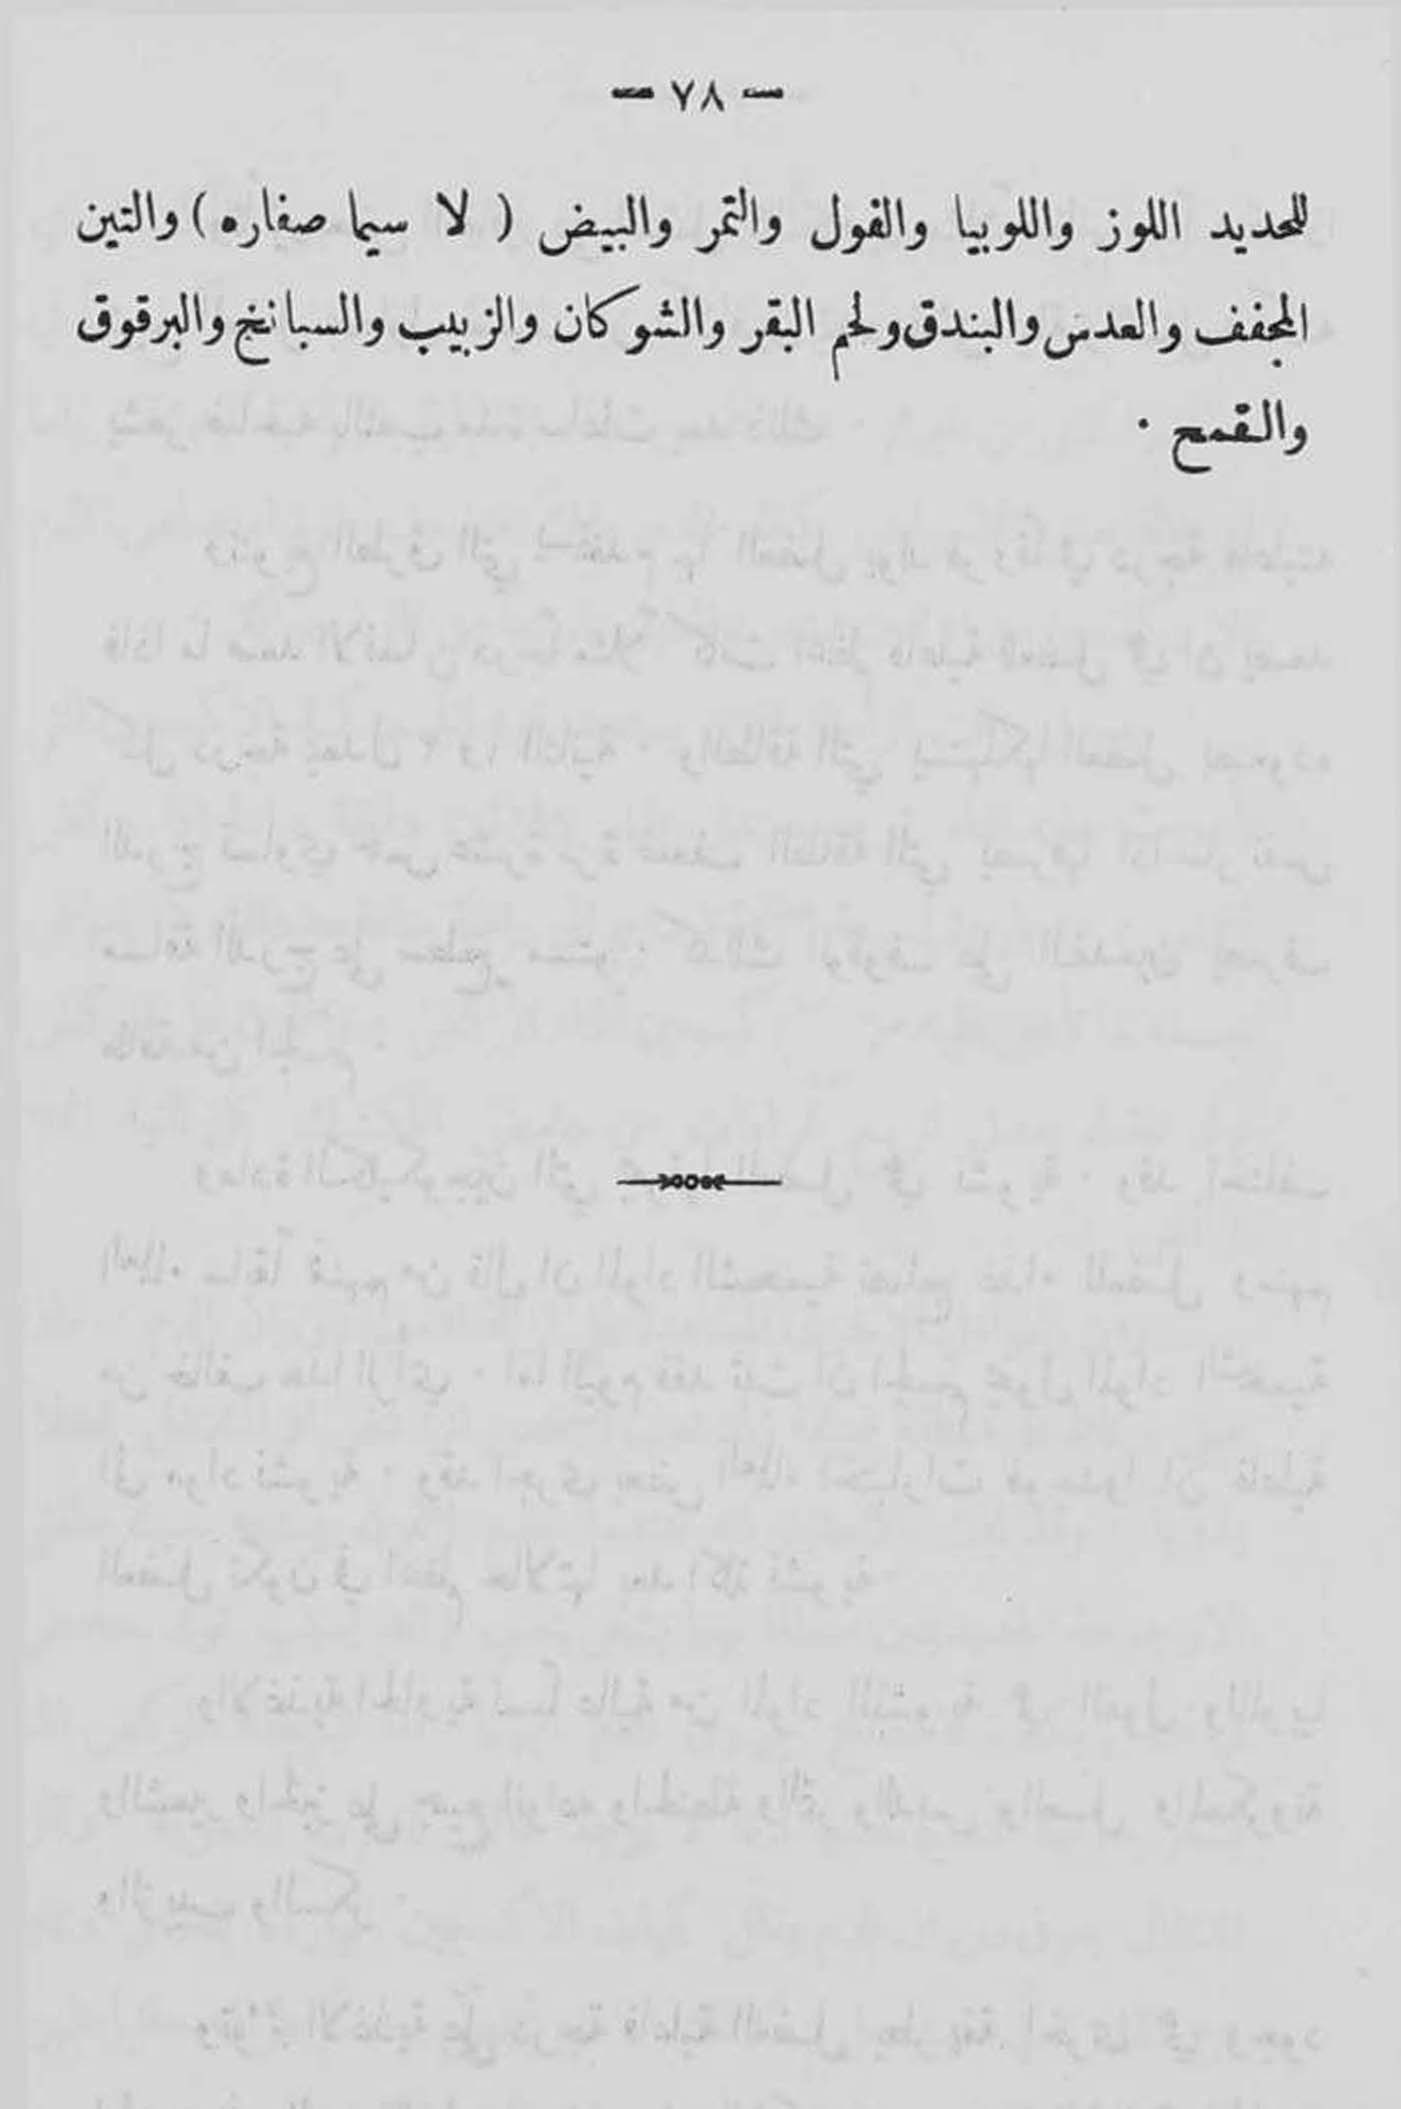 — ٧٨ —
للحديد اللوز واللوبيا والفول والتمر والبيض ( لا سيما صفاره ) والتين
المجفف والعدس والبندق ولحم البقر والشوكان والزبيب والسبانخ والبرقوق
والقمح ٠